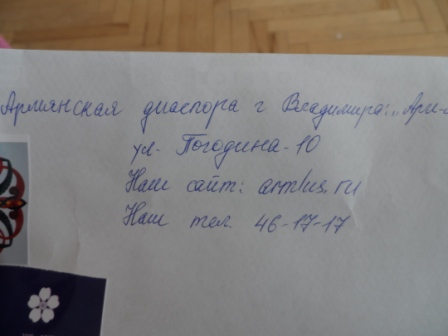 Армянская диаспора г Владимира: „Ари-
ул. Погодина-10
Наш сайт: armlus.ru
Наш тел. 46-17-17